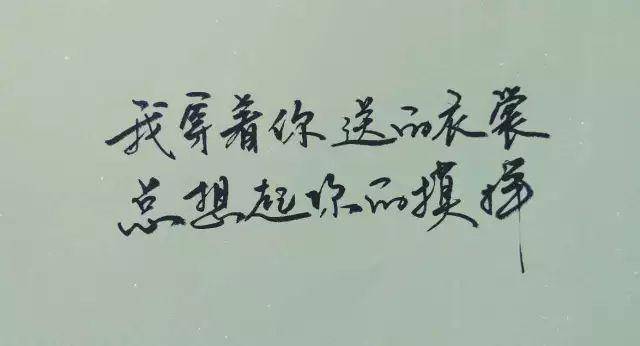 我穿着你送的衣裳
总想起你的模样